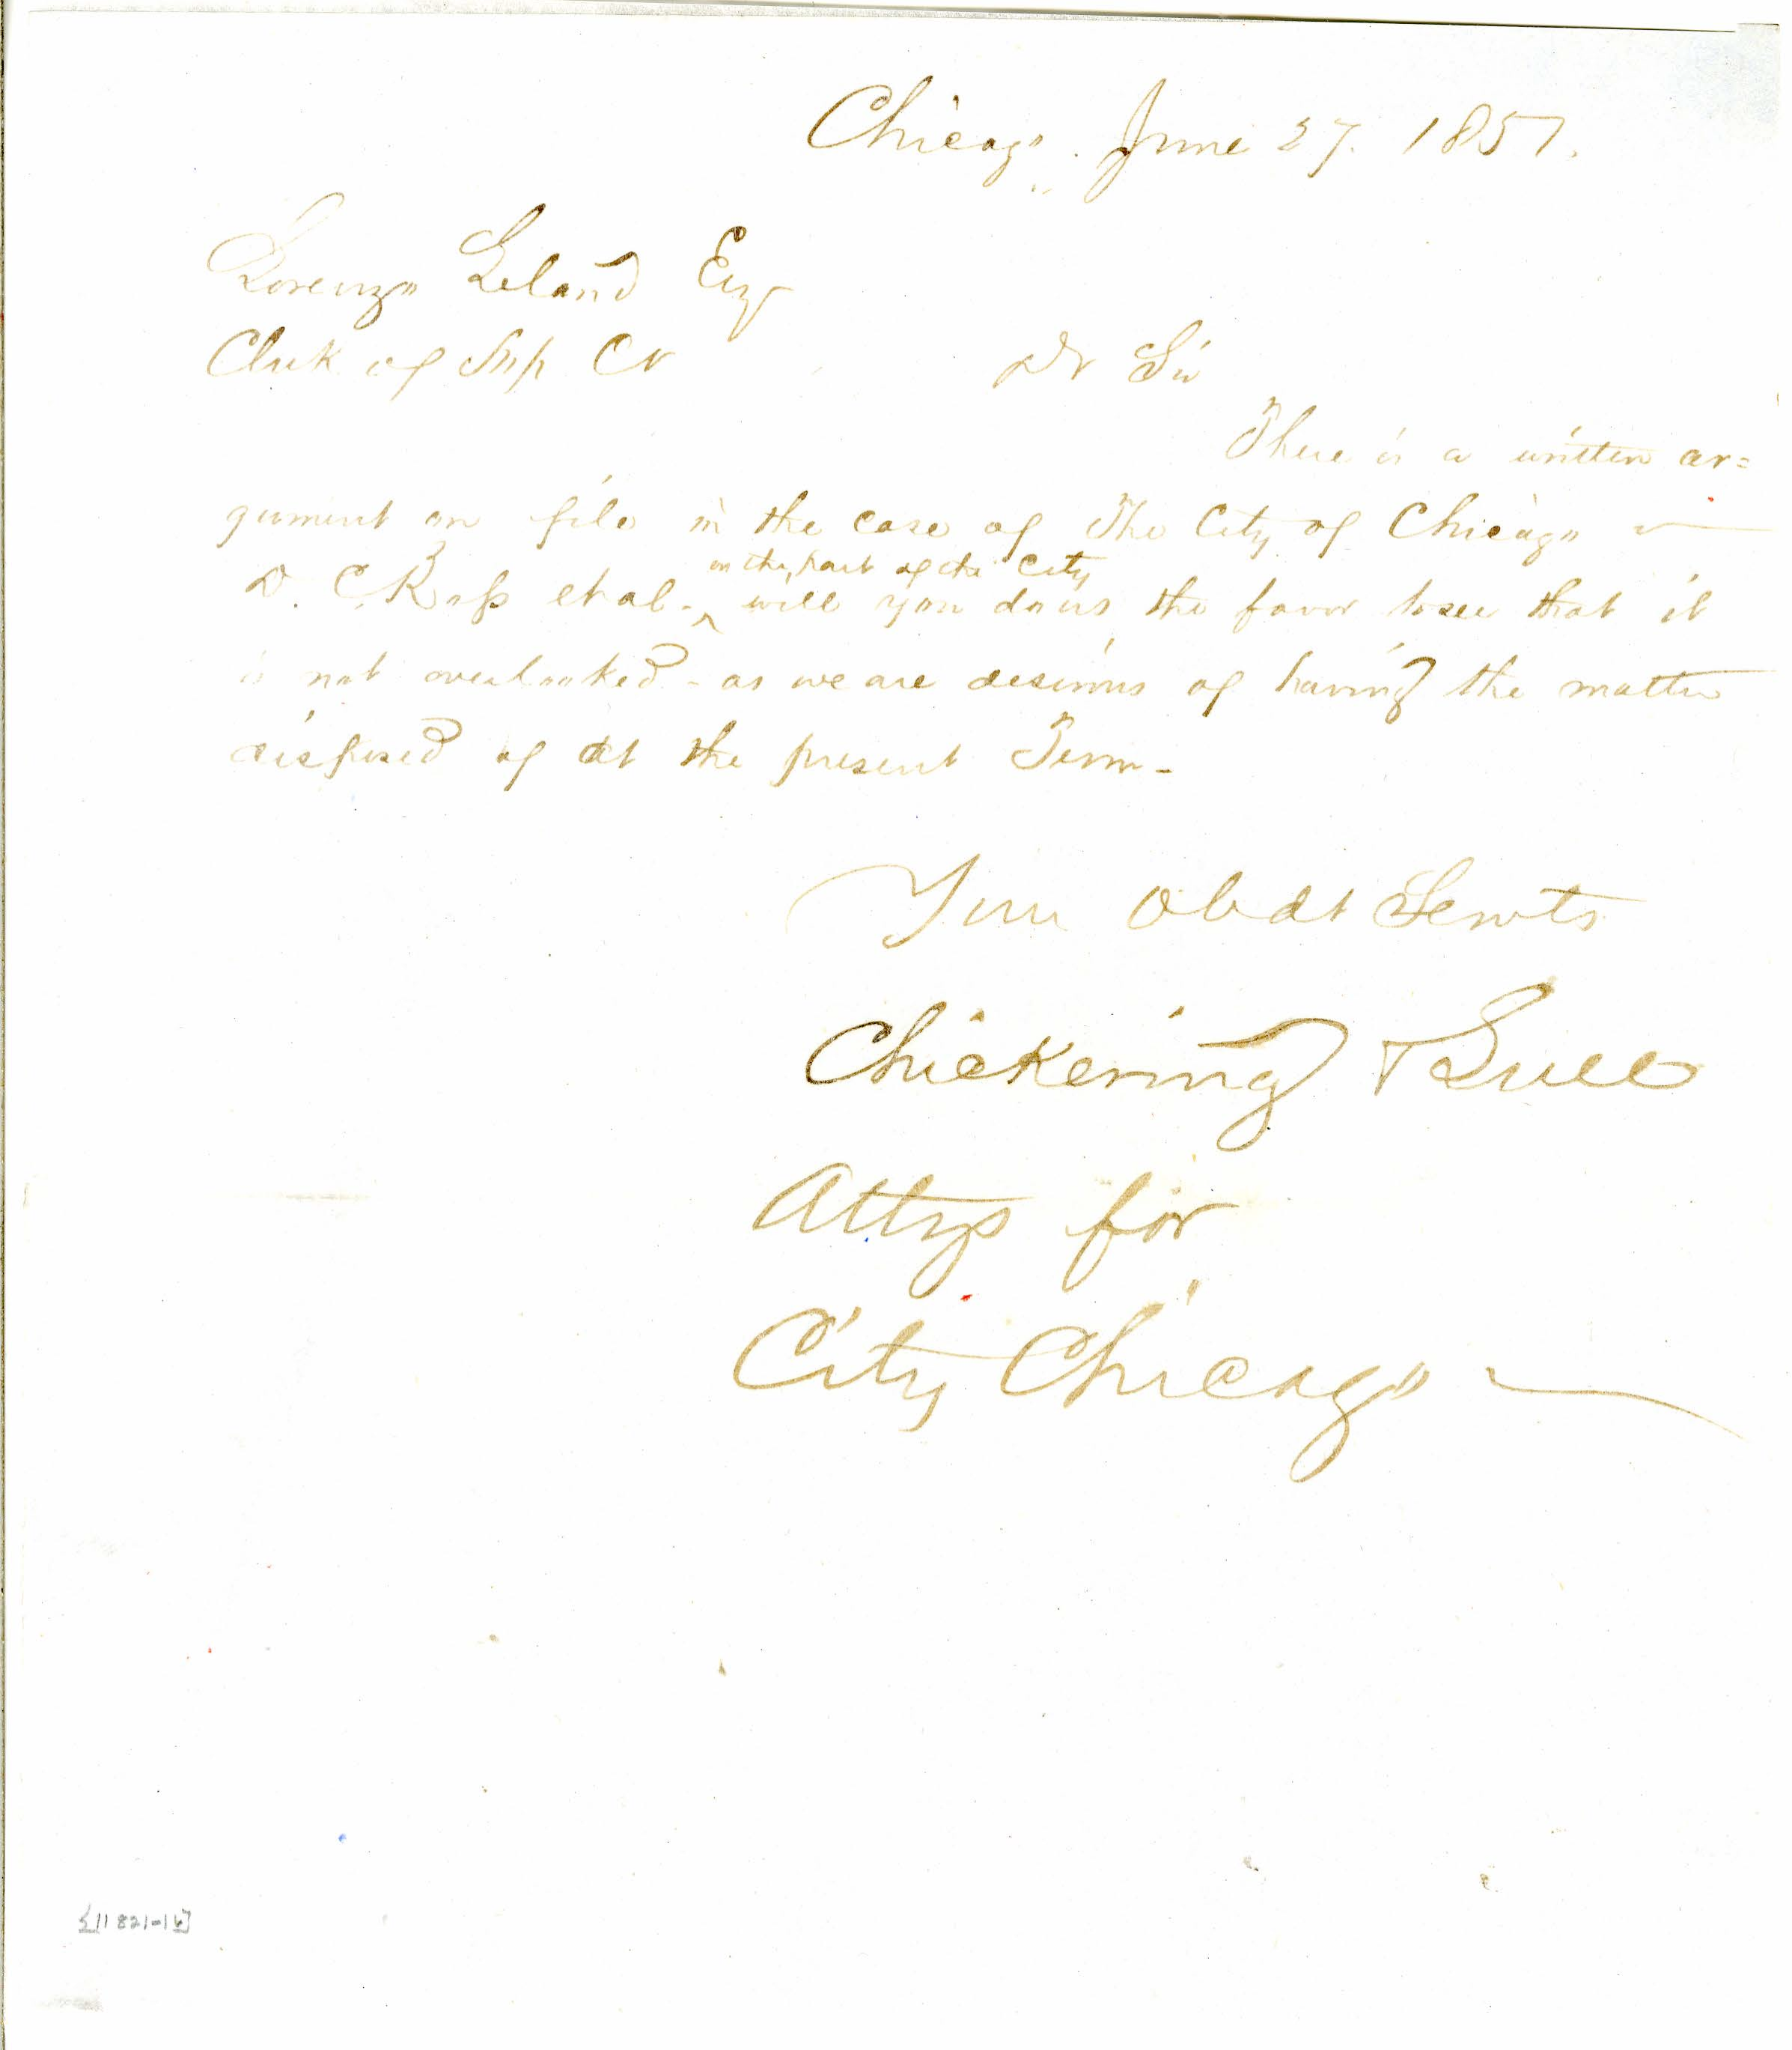 Chicago. June 27. 1851.
Lorenzo Leland Esq
Clerk of Sup Ct Dr Sir
There is a written ar=
gument on file in the case of The City of Chicago v
on the part of the City
D. C. Ross et al - ^ will you do us the favor to see that it
is not overlooked - as we are desirous of having the matter
disposed of at the present Term -
Your Obdt Servts
Chickering & Bull
Attys for
City Chicago
[11821-16]